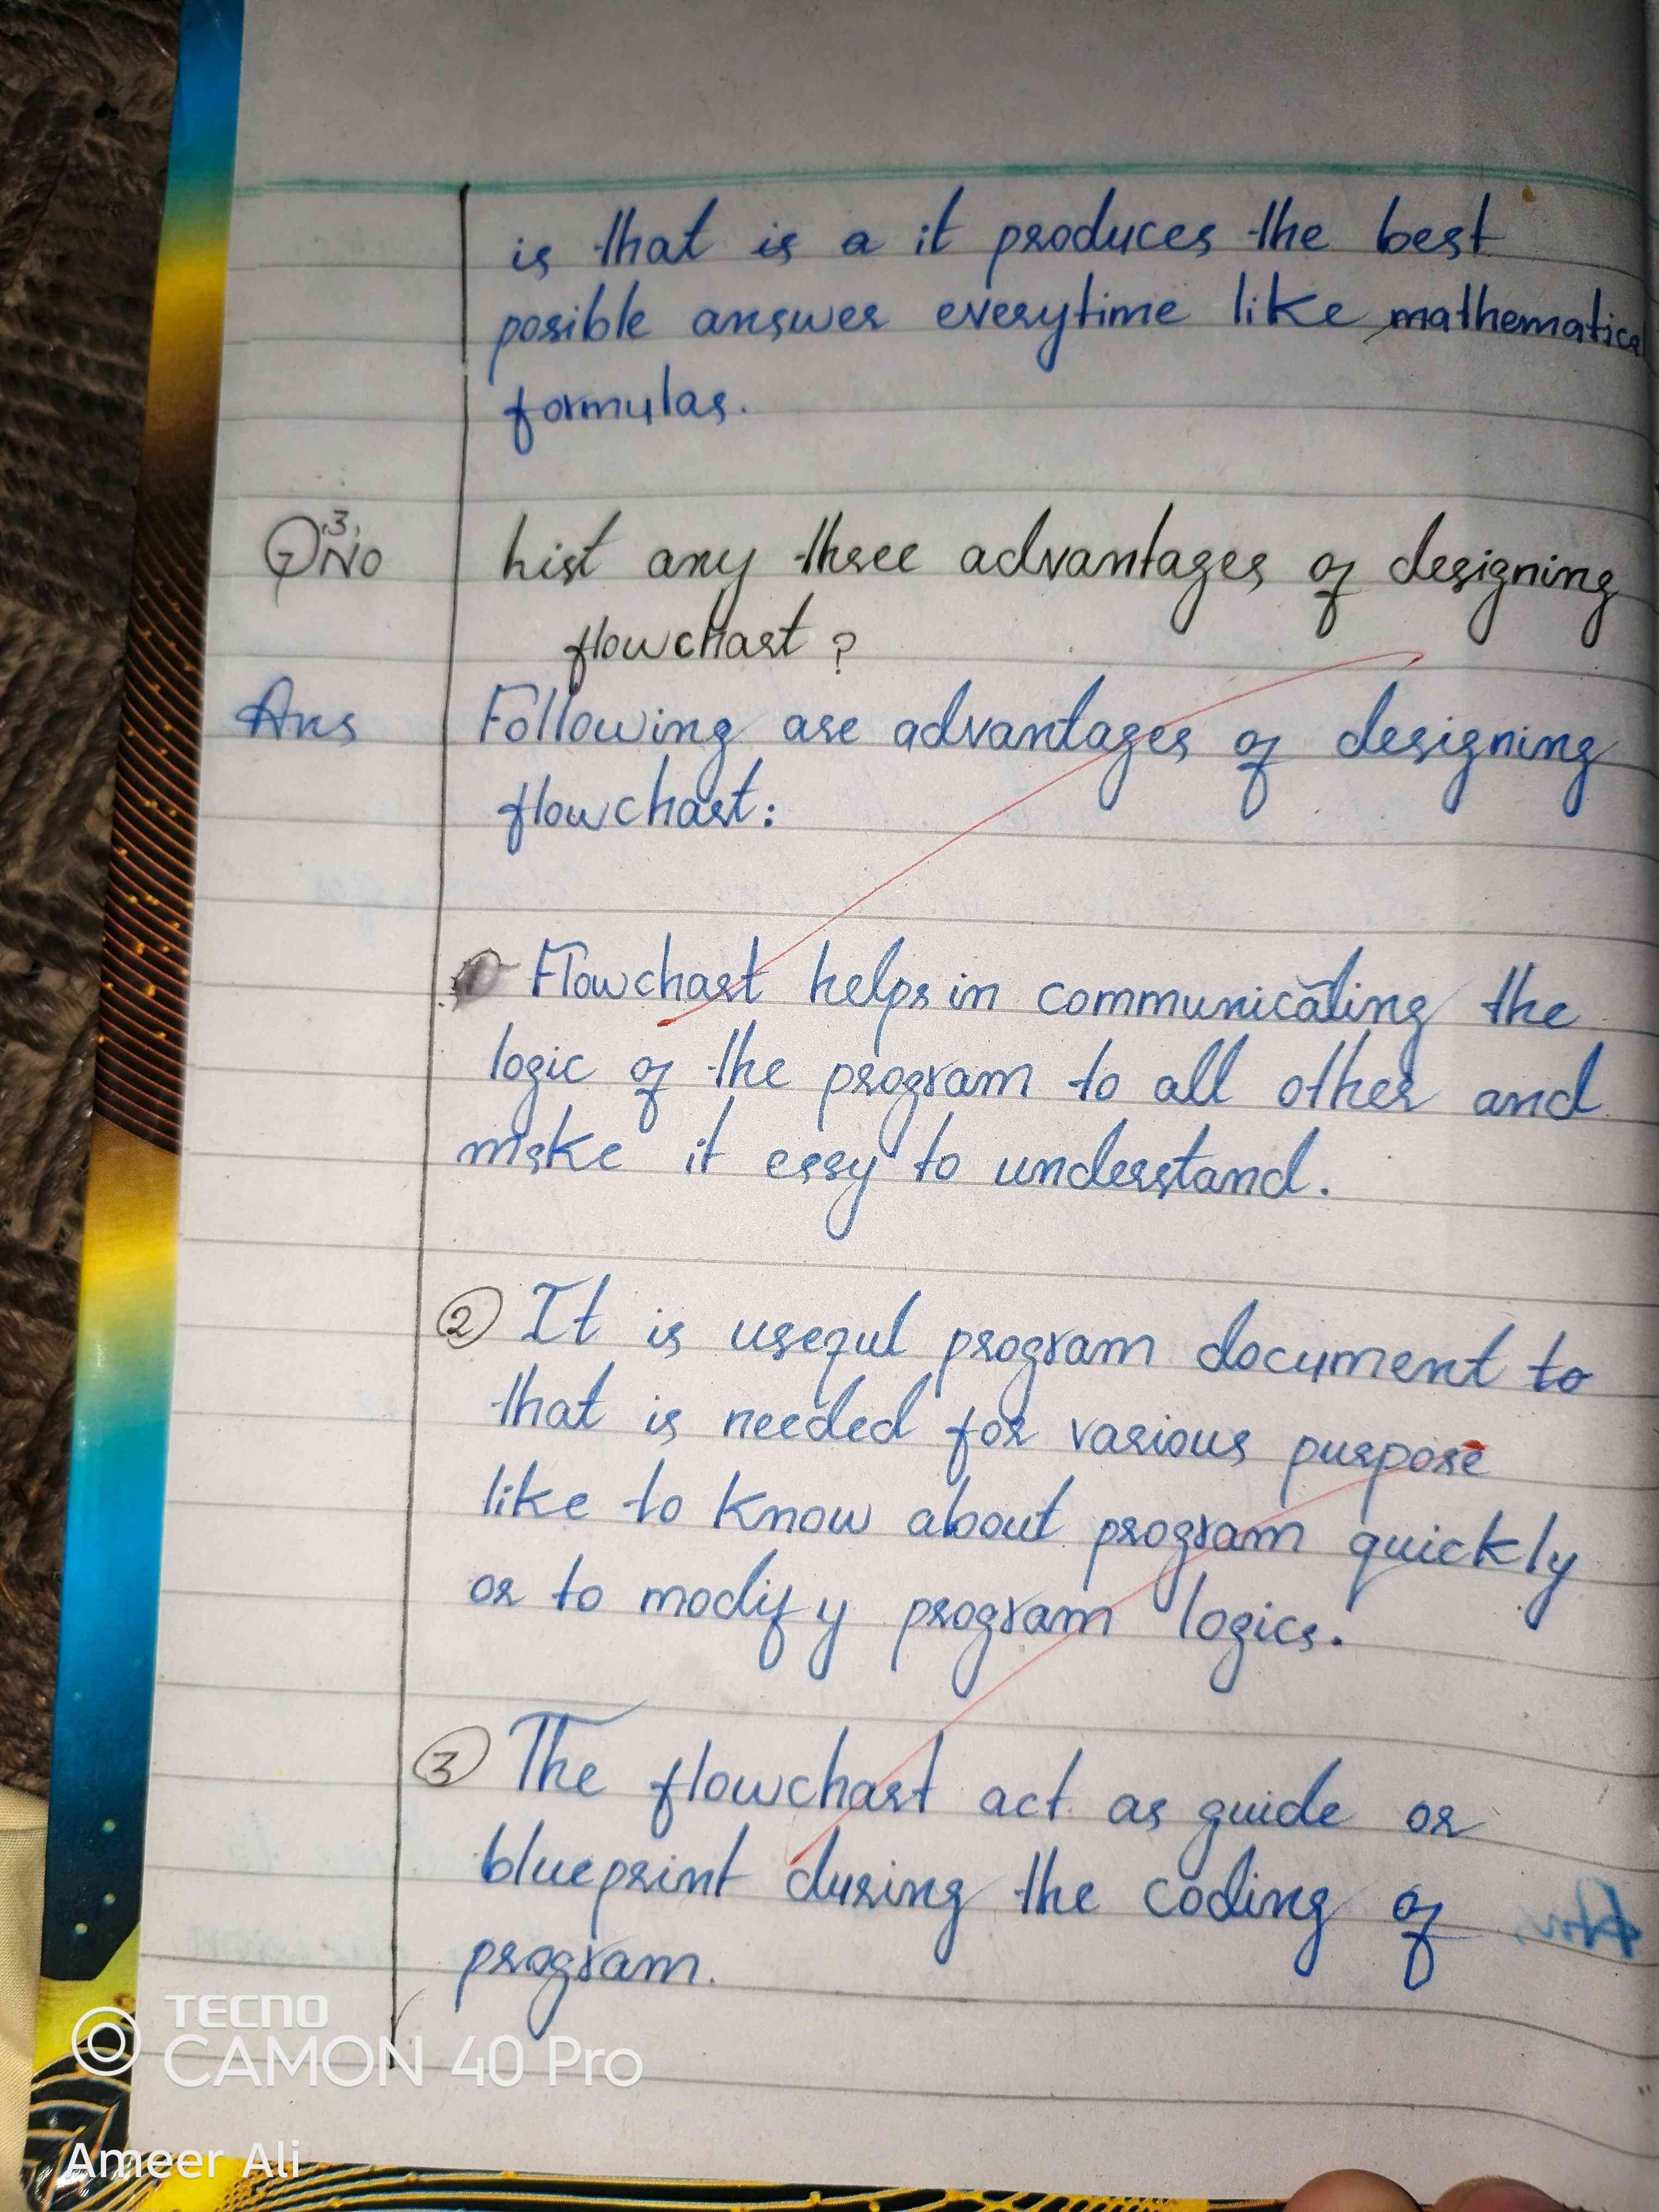 is that is a it produces the best
posible answer everytime like mathematical
formulas.
Q No 3,
List any three advantages of designing
flowchart ?
Ans
Following are advantages of designing
flowchart:
Flowchart helps in communicating the
logic of the program to all other and
make it easy to understand.
2 It is useful program document to
that is needed for various purpose
like to know about program quickly
or to modify program logics.
3 The flowchart act as guide or
blueprint during the coding of
program.
TECNO
CAMON 40 Pro
Ameer Ali